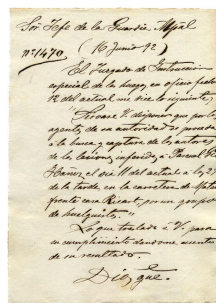 Sor Jefe de la Guardia Mpal
nº 1470 (16 Junio 92)
El Juzgado de Instrucción
especial de la huelga, en oficio fecha
12 del actual me dice lo siguiente;
"Sirvase V. disponer que por los
agentes de su autoridad se proceda
a la busca y captura de los autores
de las lesiones inferidas a
el dia 11 del actual a las
de la tarde en la carretera de
frente casa Ricart, por un grupo
de huelguistas."
Lo que traslado a V. para
su cumplimiento dandome cuenta
de su resultado.